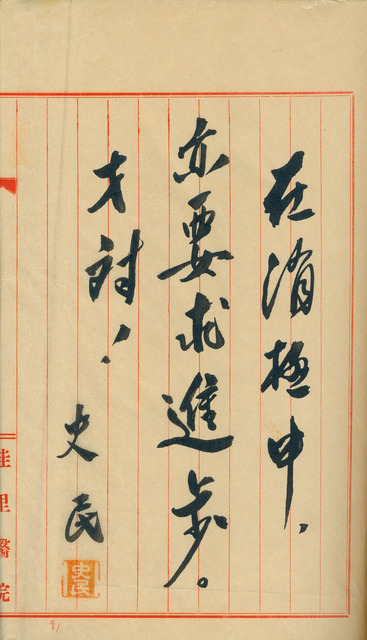 在消極中,
亦要求進步。
才対!
史民
史民
佳里醫院
91